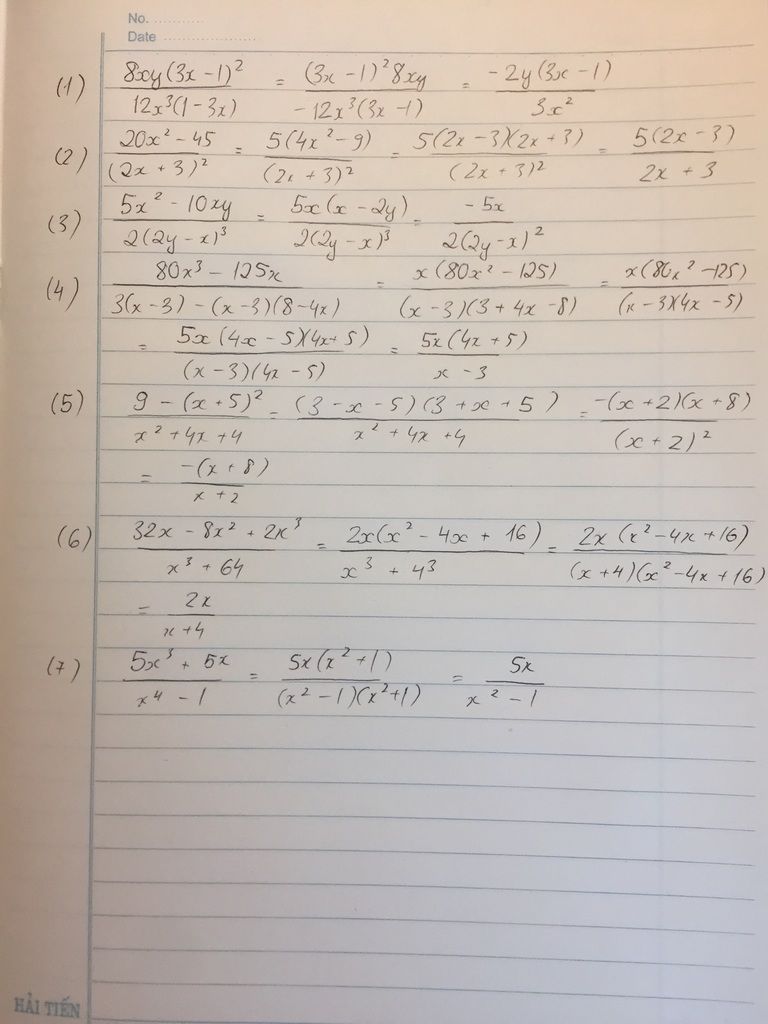 No. ...........
Date ......................
(1) 8xy(3x - 1)² / 12x³(1 - 3x) = (3x - 1)² 8xy / -12x³(3x - 1) = -2y(3x - 1) / 3x²
(2) 20x² - 45 / (2x + 3)² = 5(4x² - 9) / (2x + 3)² = 5(2x - 3)(2x + 3) / (2x + 3)² = 5(2x - 3) / 2x + 3
(3) 5x² - 10xy / 2(2y - x)³ = 5x(x - 2y) / 2(2y - x)³ = -5x / 2(2y - x)²
(4) 80x³ - 125x / 3(x - 3) - (x - 3)(8 - 4x) = x(80x² - 125) / (x - 3)(3 + 4x - 8) = x(80x² - 125) / (x - 3)(4x - 5)
= 5x(4x - 5)(4x + 5) / (x - 3)(4x - 5) = 5x(4x + 5) / x - 3
(5) 9 - (x + 5)² / x² + 4x + 4 = (3 - x - 5)(3 + x + 5) / x² + 4x + 4 = -(x + 2)(x + 8) / (x + 2)²
= -(x + 8) / x + 2
(6) 32x - 8x² + 2x³ / x³ + 64 = 2x(x² - 4x + 16) / x³ + 4³ = 2x(x² - 4x + 16) / (x + 4)(x² - 4x + 16)
= 2x / x + 4
(7) 5x³ + 5x / x⁴ - 1 = 5x(x² + 1) / (x² - 1)(x² + 1) = 5x / x² - 1
HẢI TIẾN